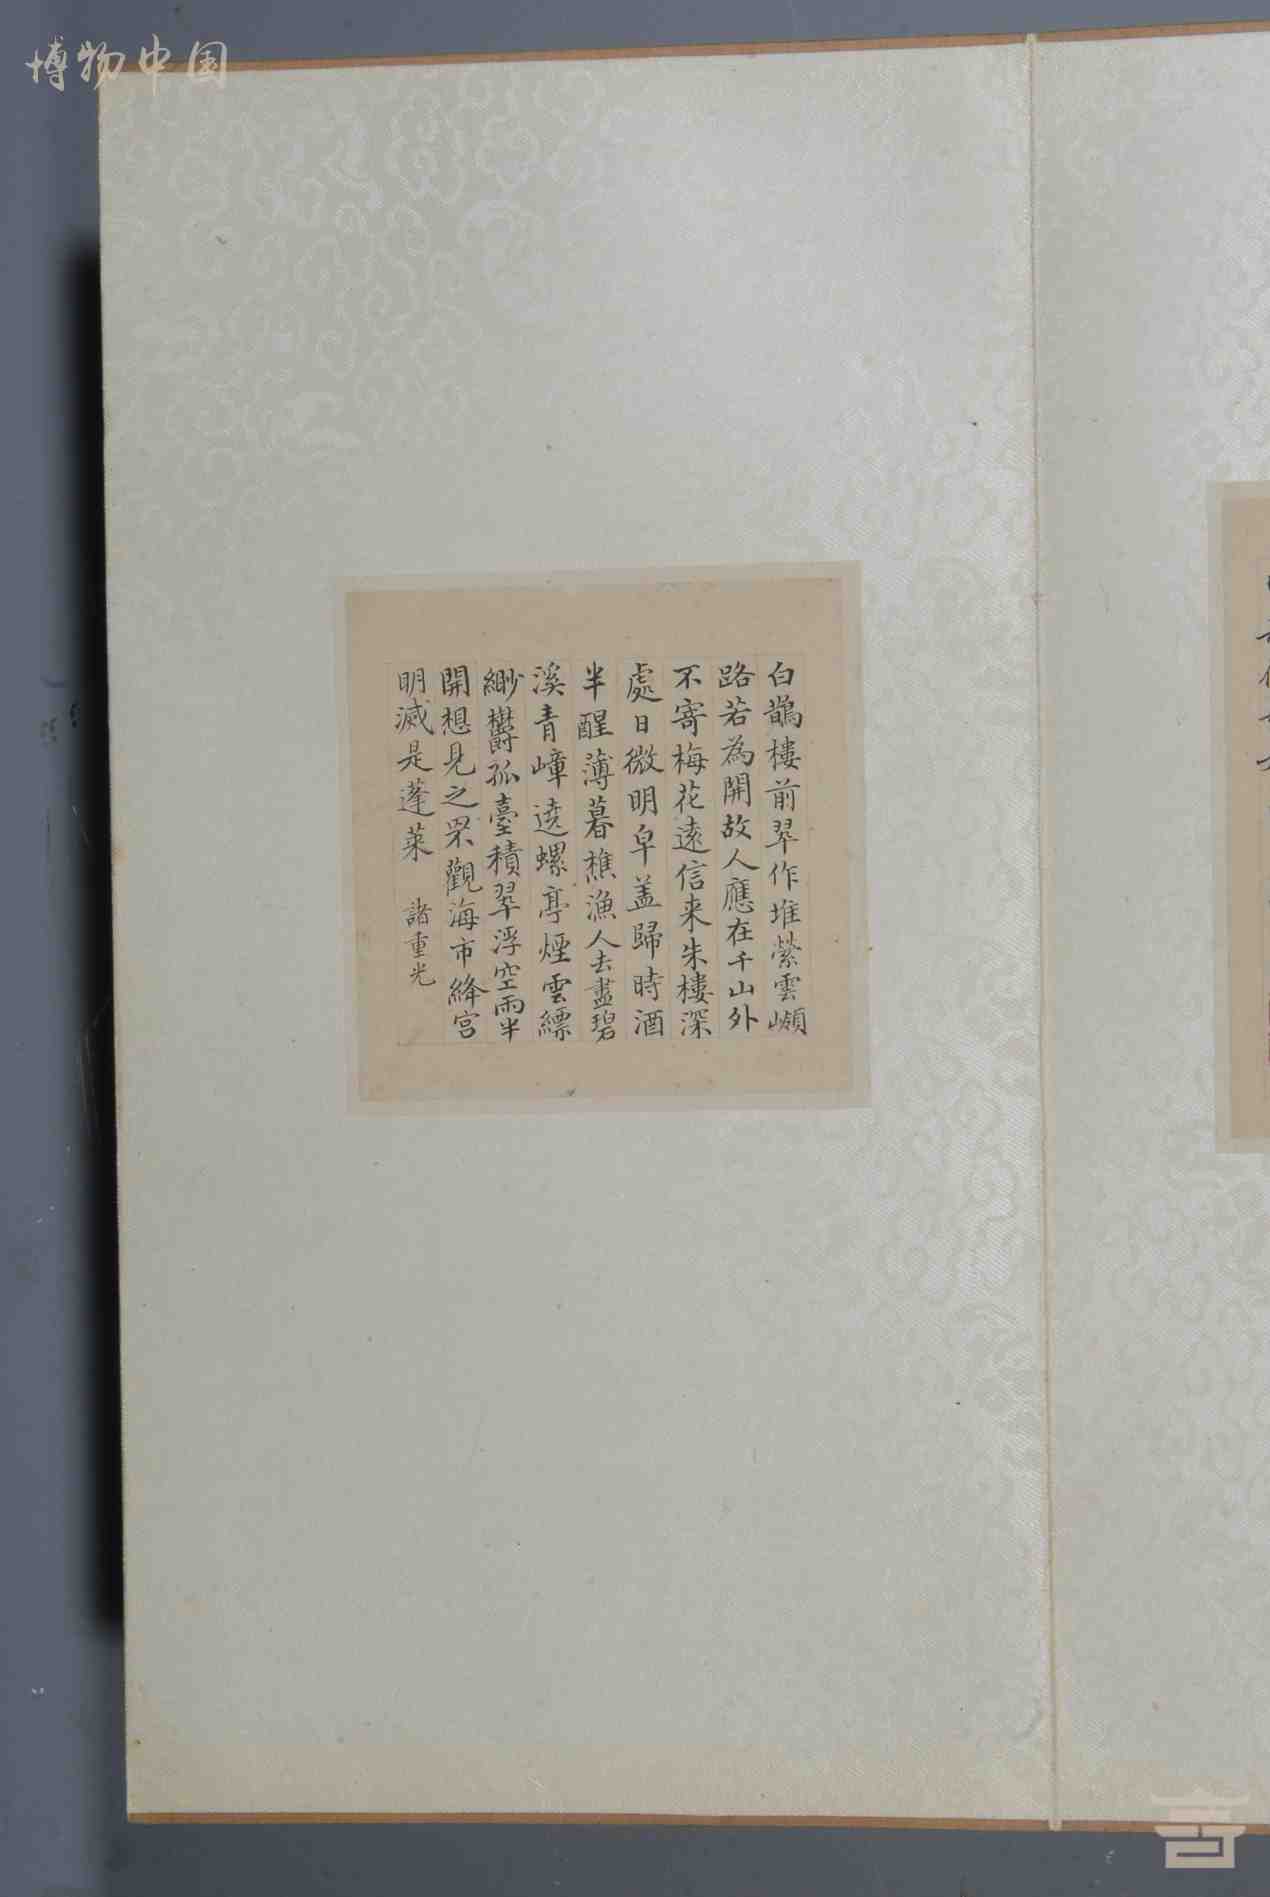 博物中国
白鷳樓前翠作堆縈雲嶺
路若為開故人應在千山外
不寄梅花遠信来朱樓深
處日微明皁盖歸時酒
半醒薄暮樵漁人去盡碧
溪青嶂遶螺亭煙雲縹
緲欝孤臺積翠浮空雨半
開想見之罘觀海市絳宫
明滅是蓬萊 諸重光